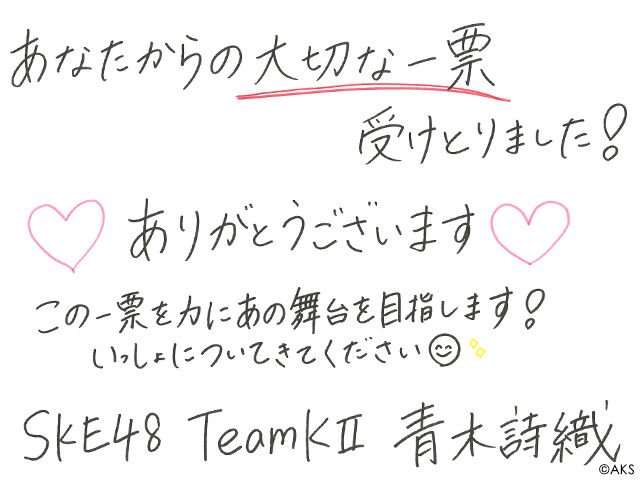 あなたからの大切な一票
受けとりました!
ありがとうございます
この一票を力にあの舞台を目指します!
いっしょについてきてください
SKE48 TeamKⅡ 青木詩織
©AKS